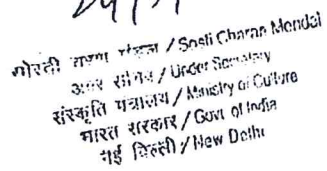 मण्डल / Sosti Charan Mondal
अवर सचिव / Under Secretary
संस्कृति मंत्रालय / Ministry of Culture
भारत सरकार / Govt. of India
नई दिल्ली / New Delhi